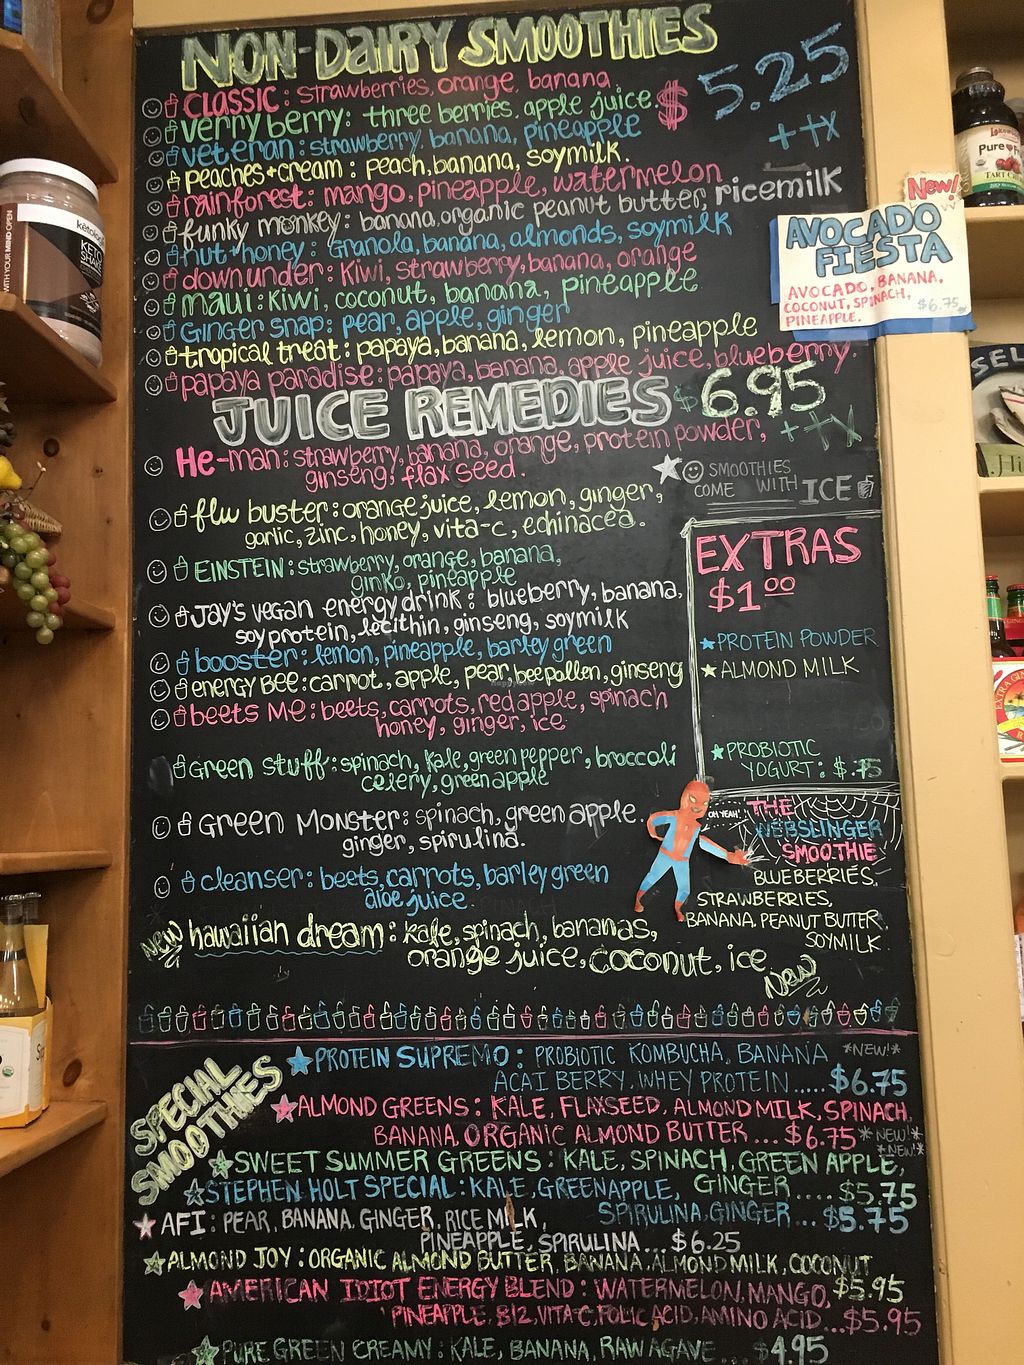 NON-DAIRY SMOOTHIES
$5.25
++x
CLASSIC: strawberries, orange, banana
verry berry: three berries, apple juice.
veteran: strawberry, banana, pineapple
peaches+cream: peach, banana, soymilk.
rainforest: mango, pineapple, watermelon
funky monkey: banana, organic peanut butter, ricemilk
nut+honey: Granola, banana, almonds, soymilk
down under: Kiwi, strawberry, banana, orange
maui: Kiwi, coconut, banana, pineapple
GINGER snap: pear, apple, ginger
tropical treat: papaya, banana, lemon, pineapple
papaya paradise: papaya, banana, apple juice, blueberry.
New!
AVOCADO
FIESTA
AVOCADO, BANANA,
COCONUT, SPINACH,
PINEAPPLE. $6.75
JUICE REMEDIES $6.95
++x
He-man: strawberry, banana, orange, protein powder,
ginseng, flax seed.
SMOOTHIES
COME WITH ICE
flu buster: orange juice, lemon, ginger,
garlic, zinc, honey, vita-c, echinacea.
EINSTEIN: strawberry, orange, banana,
ginko, pineapple
Jay's vegan energy drink: blueberry, banana,
soy protein, lecithin, ginseng, soymilk
booster: lemon, pineapple, barley green
energy Bee: carrot, apple, pear, bee pollen, ginseng
beets Me: beets, carrots, red apple, spinach
honey, ginger, ice
Green stuff: spinach, kale, green pepper, broccoli
celery, green apple
Green Monster: spinach, green apple.
ginger, spirulina.
cleanser: beets, carrots, barley green
aloe juice
NEW hawaiian dream: kale, spinach, bananas,
orange juice, coconut, ice
New
EXTRAS
$1.00
PROTEIN POWDER
ALMOND MILK
PROBIOTIC
YOGURT: $.75
OH YEAH!
THE
WEBSLINGER
SMOOTHIE
BLUEBERRIES,
STRAWBERRIES,
BANANA, PEANUT BUTTER,
SOYMILK
SPECIAL
SMOOTHIES
PROTEIN SUPREMO: PROBIOTIC KOMBUCHA, BANANA *NEW!*
ACAI BERRY, WHEY PROTEIN.....$6.75
ALMOND GREENS: KALE, FLAXSEED, ALMOND MILK, SPINACH,
BANANA, ORGANIC ALMOND BUTTER...$6.75 *NEW!*
*NEW!*
SWEET SUMMER GREENS: KALE, SPINACH, GREEN APPLE,
GINGER....$5.75
STEPHEN HOLT SPECIAL: KALE, GREENAPPLE,
SPIRULINA, GINGER...$5.75
AFI: PEAR, BANANA, GINGER, RICE MILK,
PINEAPPLE, SPIRULINA...$6.25
ALMOND JOY: ORGANIC ALMOND BUTTER, BANANA, ALMOND MILK, COCONUT
$5.95
AMERICAN IDIOT ENERGY BLEND: WATERMELON, MANGO,
PINEAPPLE, B12, VITA-C, FOLIC ACID, AMINO ACID...$5.95
PURE GREEN CREAMY: KALE, BANANA, RAW AGAVE...$4.95
KETO
SHAKE
WITH YOUR MIND OPEN
Pure
TART
SEL
Hi